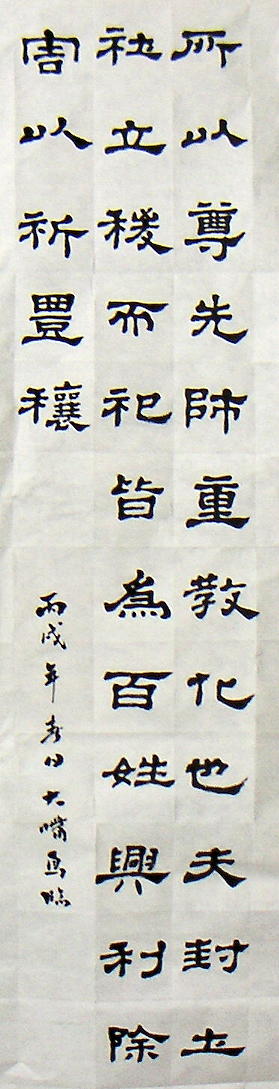 所以尊先師重教化也夫封土
社立稷而祀皆為百姓興利除
害以祈豊穰
丙戌年春日大嘴鳥臨